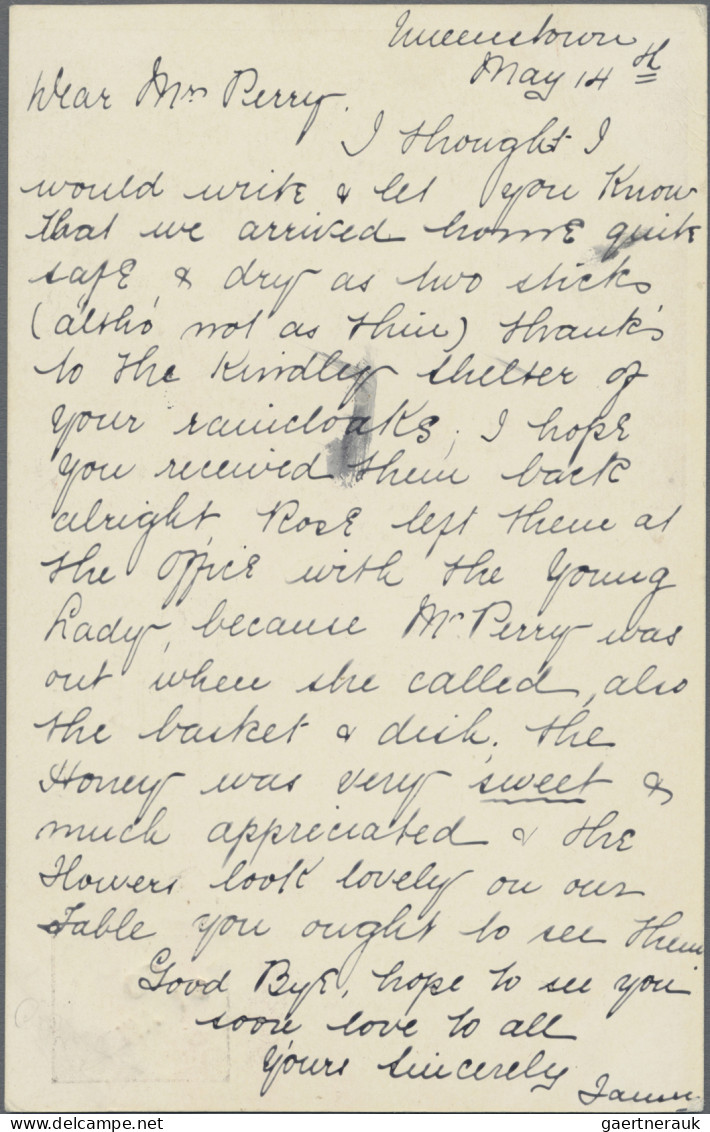 Queenstown
May 14th
Dear Mrs Perry.
I thought I
would write & let you know
that we arrived home quite
safe & dry as two sticks
(altho' not as thin) thanks
to the kindly shelter of
your raincloaks, I hope
you received them back
alright, Rose left them at
the office with the Young
Lady, because Mr Perry was
out when she called, also
the basket & dish. The
Honey was very sweet &
much appreciated & the
Flowers look lovely on our
Table you ought to see them
Good Bye, hope to see you
soon love to all
Yours sincerely
gaertnerauk